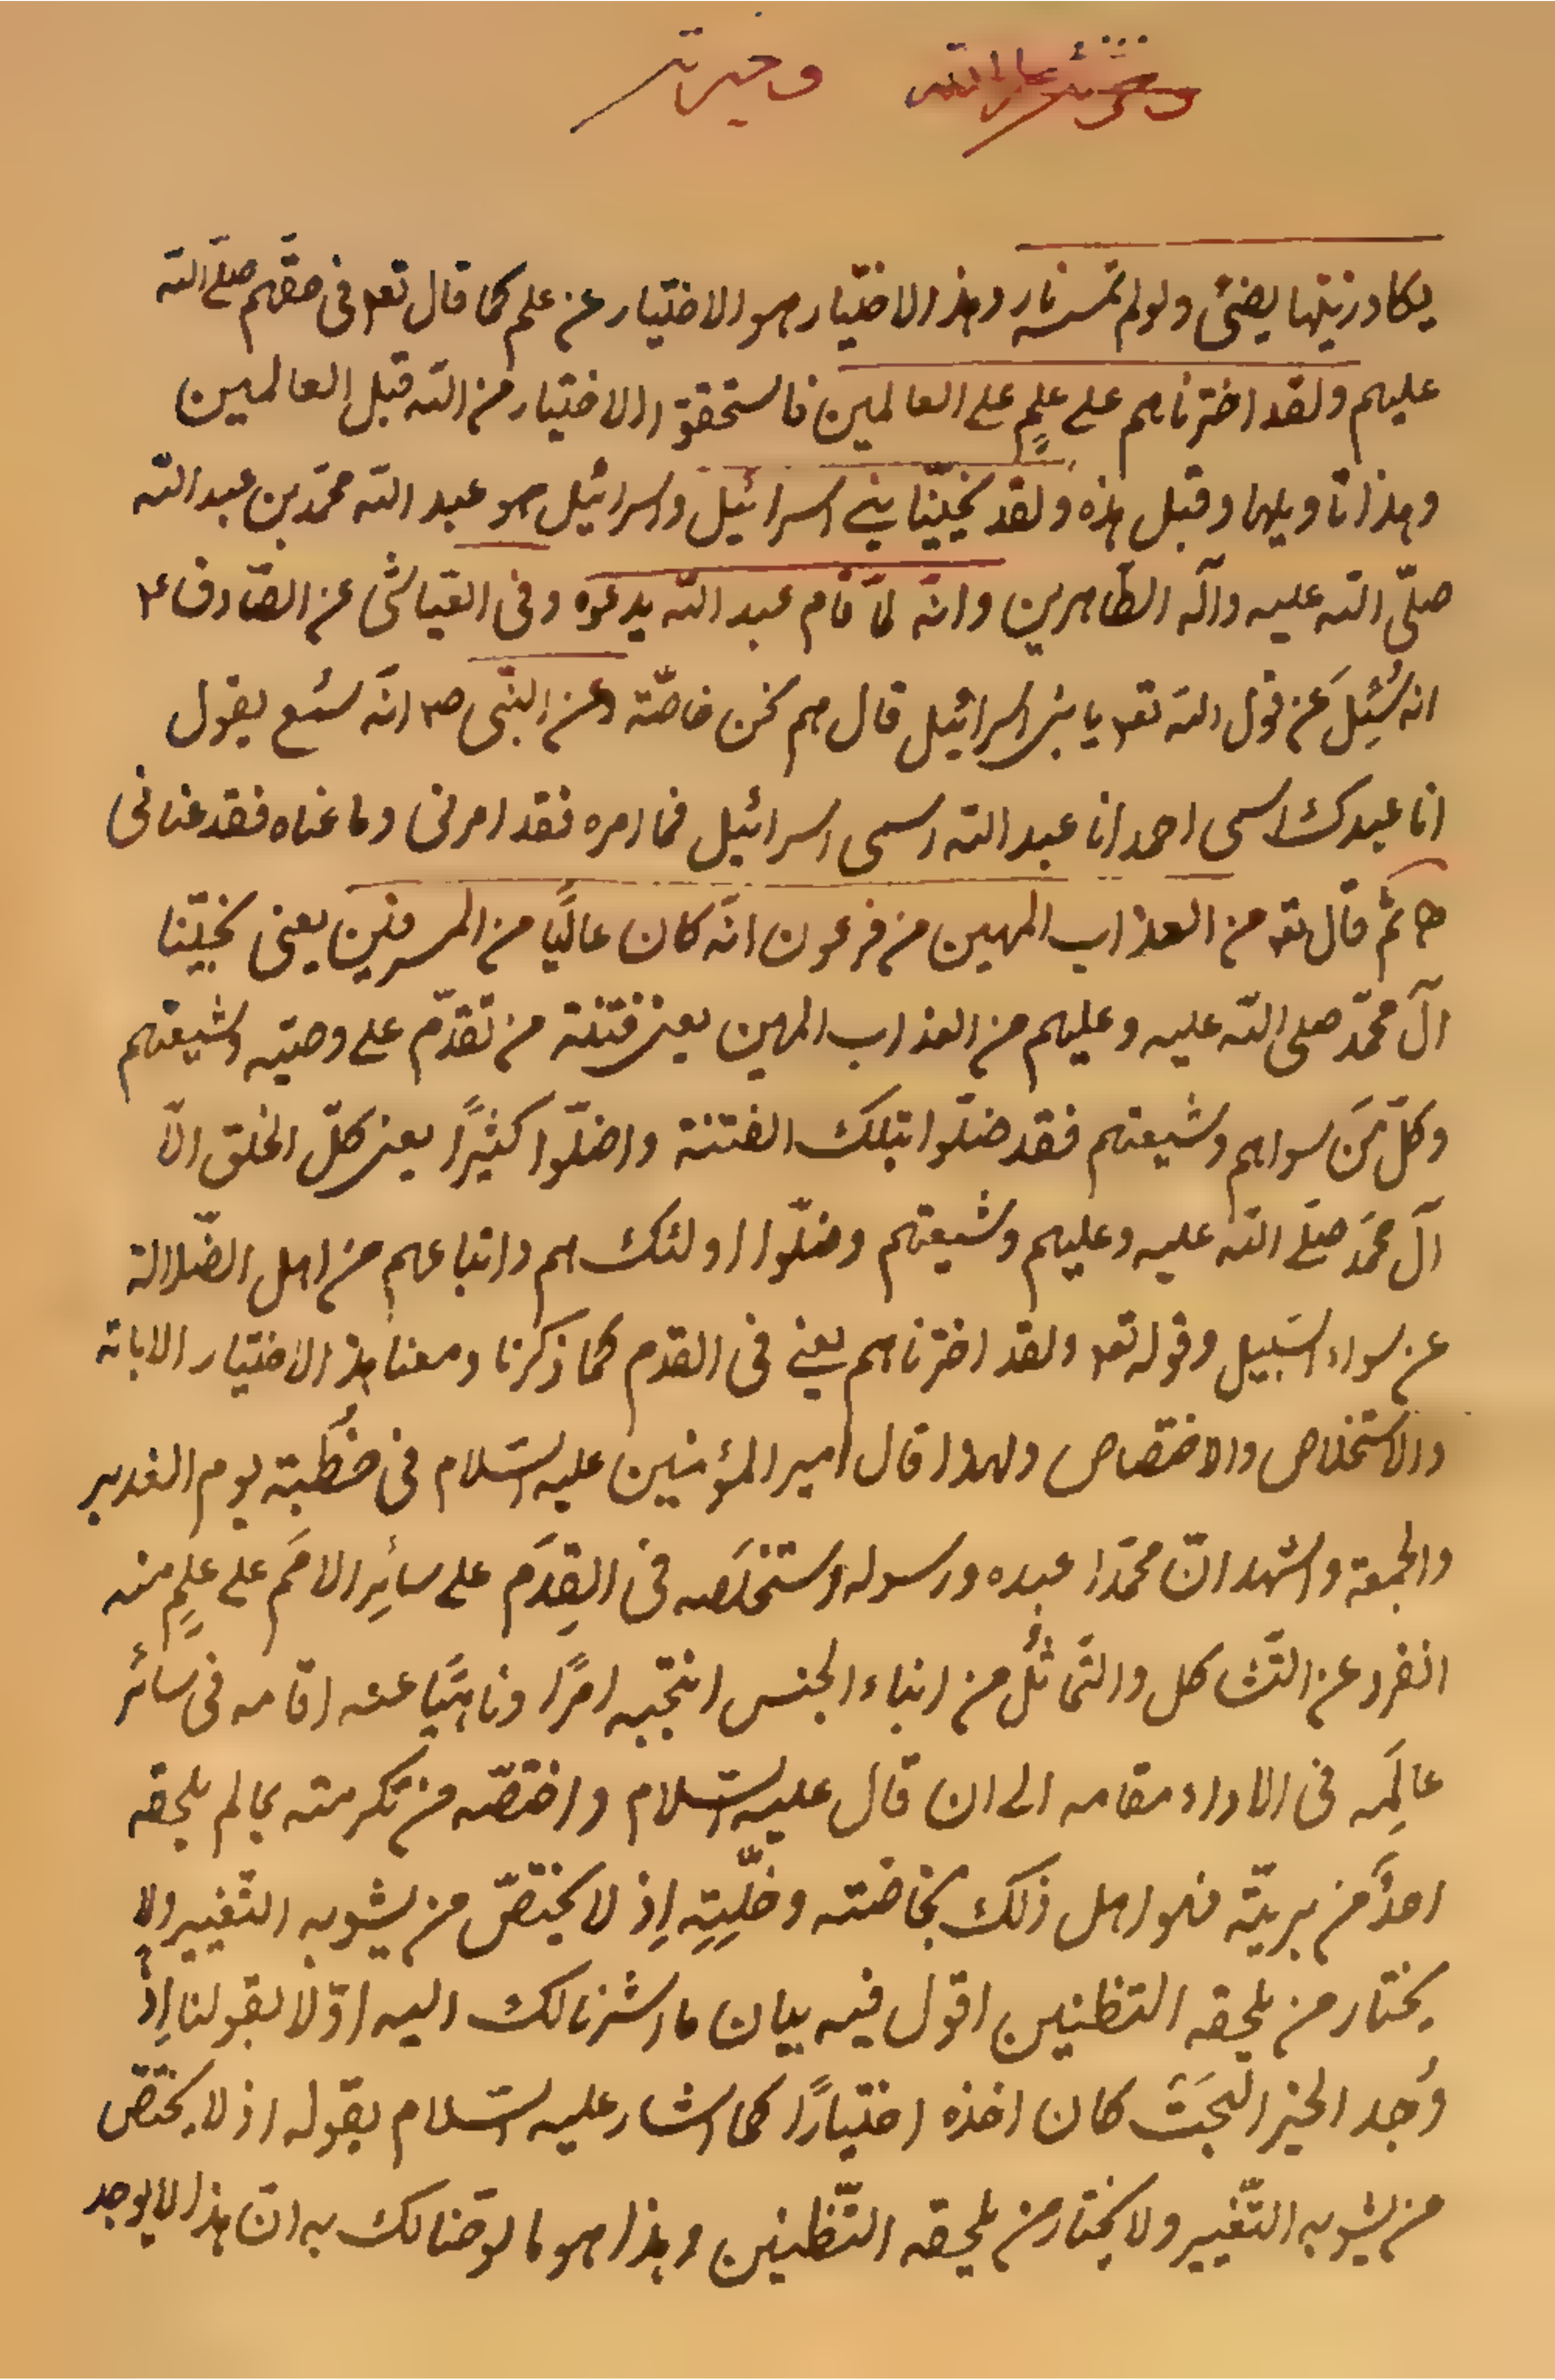 وخيرته
يكاد زيتها يضئ ولو لم تمسسه نار وهذا الاختيار هو الاختيار عن علم كما قال تعم في حقهم صلى الله
عليهم ولقد اخترناهم على علمٍ على العالمين فاستحقوا الاختيار من الله قبل العالمين
وهذا تاويلها وقبل هذه ولقد نجّينا بني اسرائيل واسرائيل هو عبد الله محمّد بن عبد الله
صلّى الله عليه وآله الطّاهرين وانّه لمّا قام عبد الله يدعوه وفي العيّاشي عن الصّادق ع
انه سُئِلَ عن قول الله تعم يا بني اسرائيل قال هم نحن خاصّة وعن النبّي ص انّه سمع يقول
انا عبدك اسمي احمد انا عبد الله اسمي اسرائيل فما امره فقد امرني وما عناه فقد عناني
ثم قال تع من العذاب المهين من فرعون انّه كان عاليًا من المسرفين يعني نجيّنا
آل محمّد صلى الله عليه وعليهم من العذاب المهين يعني فتنة من تقدّم على وصيّه وشيعتهم
وكلّ مَن سواهم وشيعتهم فقد ضلّوا بتلك الفتنة واضلّوا كثيرًا يعني كلّ الخلق الّا
آل محمّد صلّى الله عليه وعليهم وشيعتهم وضلّوا اولئك هم واتباعهم من اهل الضّلالة
عن سواء السَبيل وقوله تعم ولقد اخترناهم يعني في القدم كما ذكرنا ومعنا هذا الاختيار الابانة
والاستخلاص والاختصاص ولهذا قال امير المؤمنين عليه السّلام في خُطبته يوم الغدير
والجمعة واشهد انّ محمّدا عبده ورسوله استخلَصه في القِدَم على سائرِ الامَم على علمٍ منه
انفرد عن التّشاكل والتّماثُل من ابناء الجنس انتجبه امرًا وناهيًا عنه اقامه في سائر
عالَمِه في الاداء مقامه الى ان قال عليه السّلام واختصّه من تكرمته بما لم يلحقه
احدٌ من بريّته فهو اهل ذلك بخاصّته وخلّيتِه اِذ لا يختصّ من يشوبه التّغيير ولا
يختار من يلحقه التظنين اقول فيه بيان ما اشرنا لك اليه اوّلا بقولنا اِذا
وُجد الخير البَحت كان اخذه اختيارًا كما اشار عليه السّلام بقوله اذ لا يختصّ
من يشوبه التّغيير ولا يختار من يلحقه التّظنين وهذا هو ما لوّحنا لك به انّ هذا لا يوجد